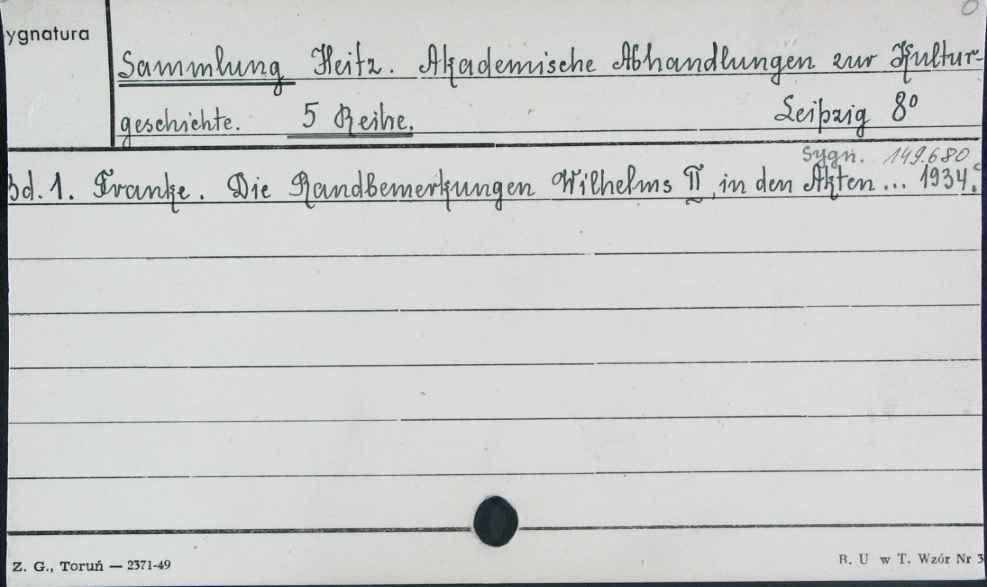 ygnatura
Sammlung Heitz. Akademische Abhandlungen zur Kultur-
geschichte. 5 Reihe. Leipzig 8º
Sygn. 149.680
Bd. 1. Franke. Die Randbemerkungen Wilhelms II, in den Akten ... 1934.
Z. G., Toruń — 2371-49
B. U w T. Wzór Nr 3